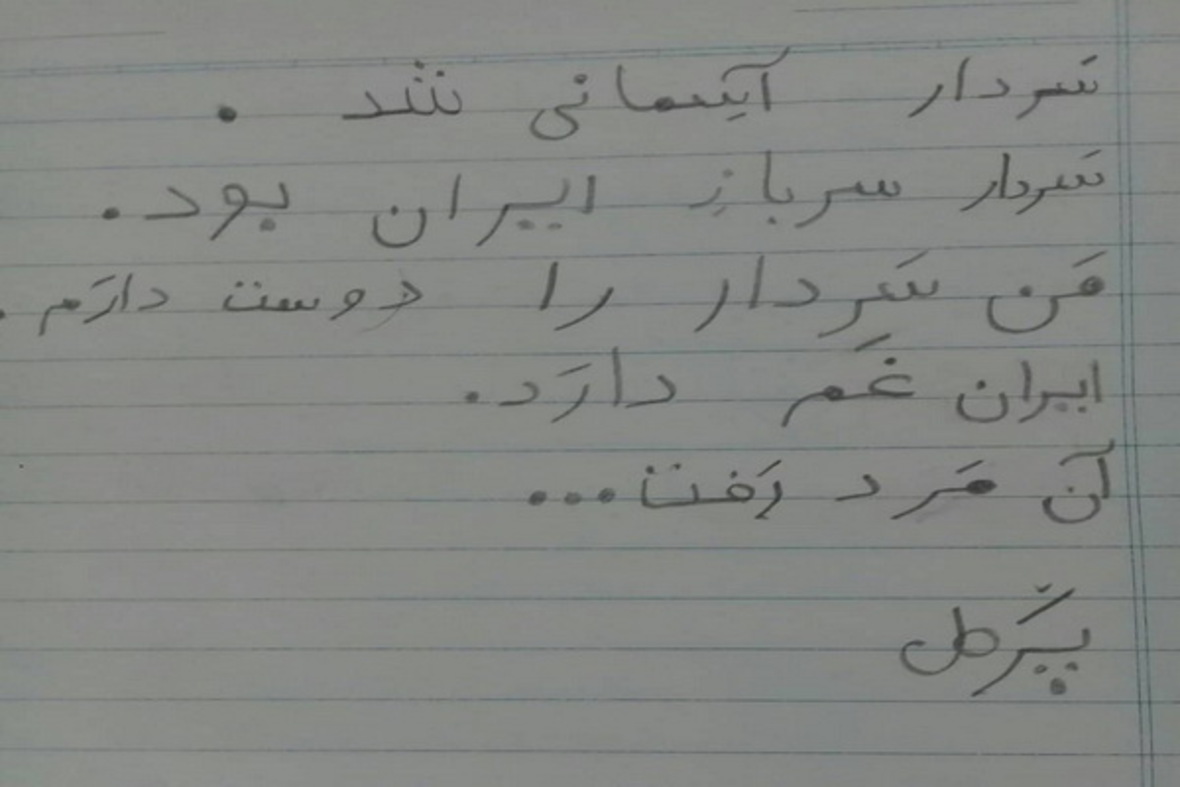 سَردار آسِمانی شُد .
سَردار سربازِ ایران بود.
مَن سَردار را دوست دارَم.
ایران غَم دارَد.
آن مَرد رَفت...